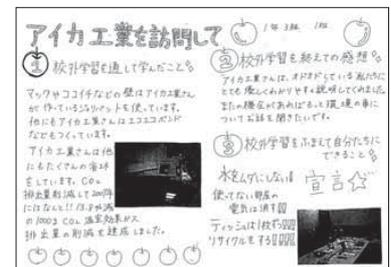 アイカ工業を訪問して
1年3組 1班
① 校外学習を通して学んだこと
マックやココイチなどの壁はアイカ工業さん
が作っているジョリパットを使っています。
他にもアイカ工業さんはエコエコボンド
などもつくっています。
アイカ工業さんは他
にもたくさんの省エネ
をしています。CO₂
排出量削減して
には なんと!! 13.8%減
の CO₂ 温室効果ガス
排出量の削減を達成しました。
② 校外学習を終えての感想
アイカ工業さんは、オドオドしている私たちに
とても優しくわかりやすく説明してくれました。
またの機会があればもっと環境の事に
ついてお話を聞きたいです。
③ 校外学習をふまえて自分たちに
できること
水をムダにしない!
宣言
使ってない部屋の
電気は消す!!
ティッシュは1枚ずつ!!!
リサイクルをする!!!!